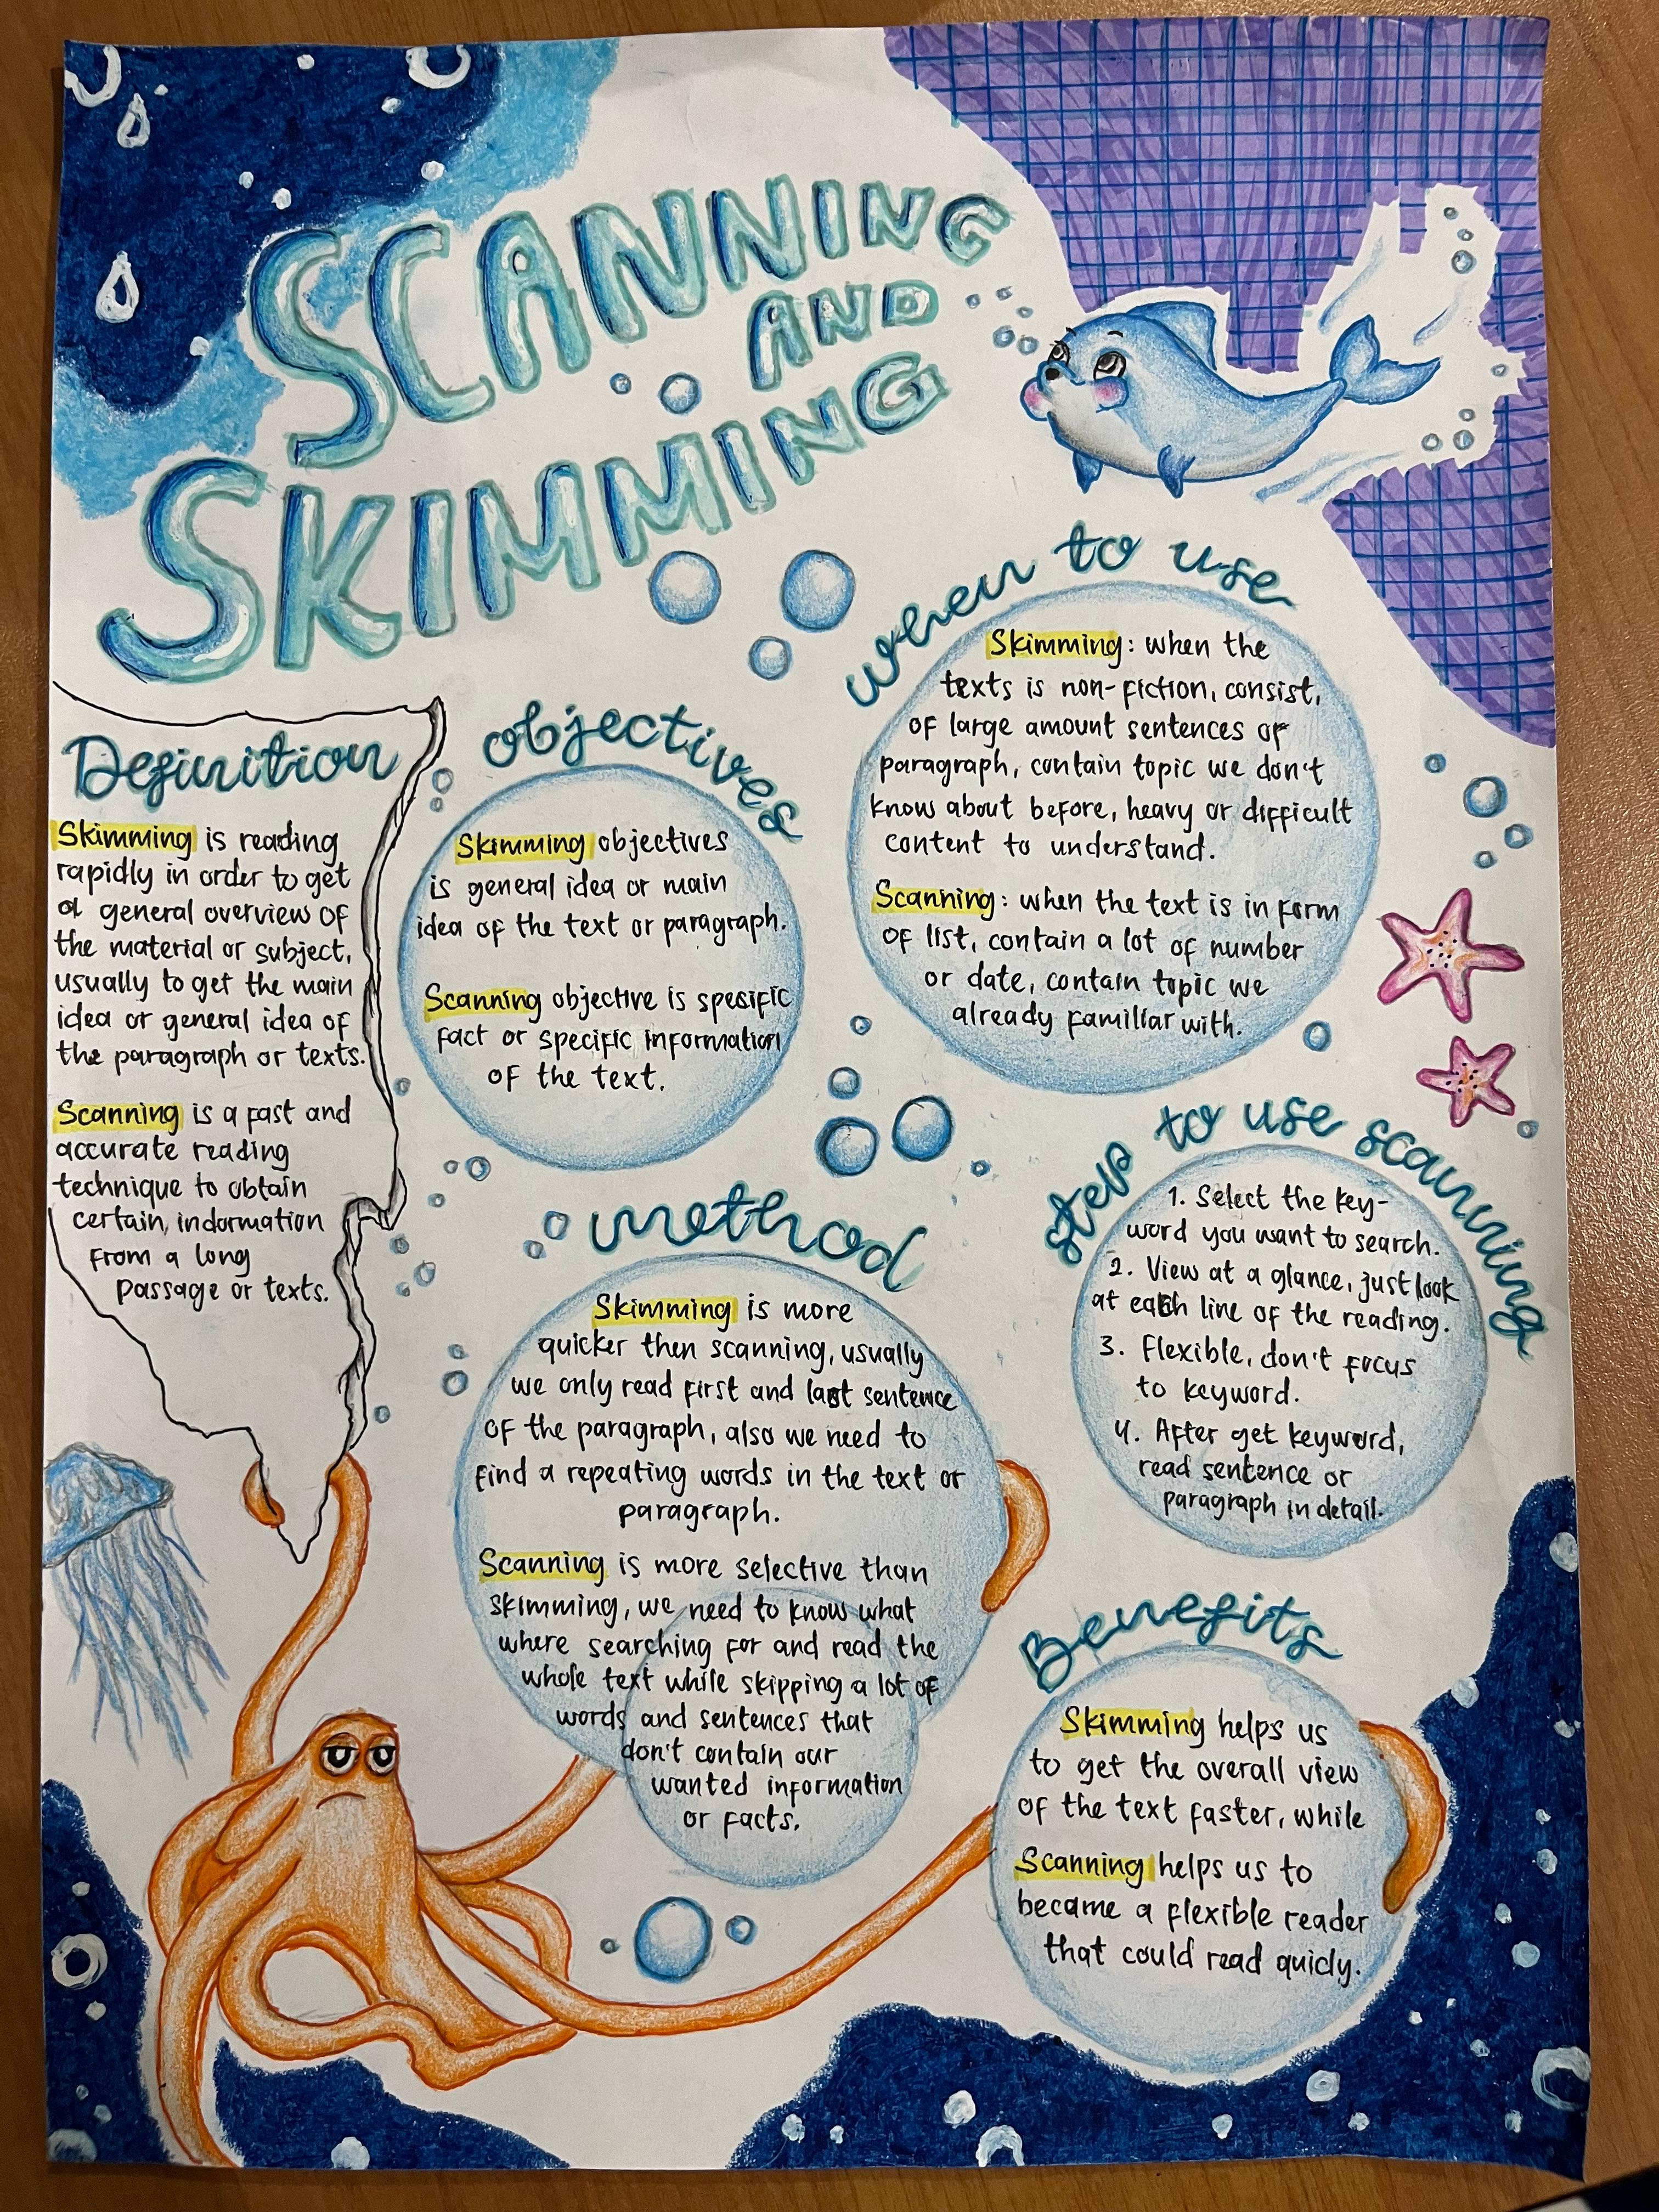 SCANNING
AND
SKIMMING
Definition
Skimming is reading
rapidly in order to get
a general overview of
the material or subject,
usually to get the main
idea or general idea of
the paragraph or texts.
Scanning is a fast and
accurate reading
technique to obtain
certain, indormation
from a long
passage or texts.
objectives
Skimming objectives
is general idea or main
idea of the text or paragraph.
Scanning objective is spesific
fact or specific information
of the text.
when to use
Skimming: when the
texts is non-fiction, consist,
of large amount sentences or
paragraph, contain topic we don't
know about before, heavy or difficult
content to understand.
Scanning: when the text is in form
of list, contain a lot of number
or date, contain topic we
already familiar with.
method
Skimming is more
quicker then scanning, usually
we only read first and last sentence
of the paragraph, also we need to
find a repeating words in the text or
paragraph.
Scanning is more selective than
skimming, we need to know what
where searching for and read the
whole text while skipping a lot of
words and sentences that
don't contain our
wanted information
or facts.
step to use scanning
1. Select the key-
word you want to search.
2. View at a glance, just look
at each line of the reading.
3. Flexible, don't focus
to keyword.
4. After get keyword,
read sentence or
paragraph in detail.
Benefits
Skimming helps us
to get the overall view
of the text faster, while
Scanning helps us to
became a flexible reader
that could read quicly.